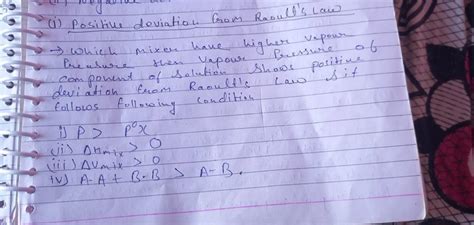 (i) Positive deviation from Raoult's Law
→ Which mixer have higher vapour
Preasure then vapour Pressure of
component of solution shows positive
deviation from Raoult's Law & it
follows following condition
i) P > P°X
(ii) ΔHmix > 0
(iii) ΔVmix > 0
iv) A-A + B-B > A-B.